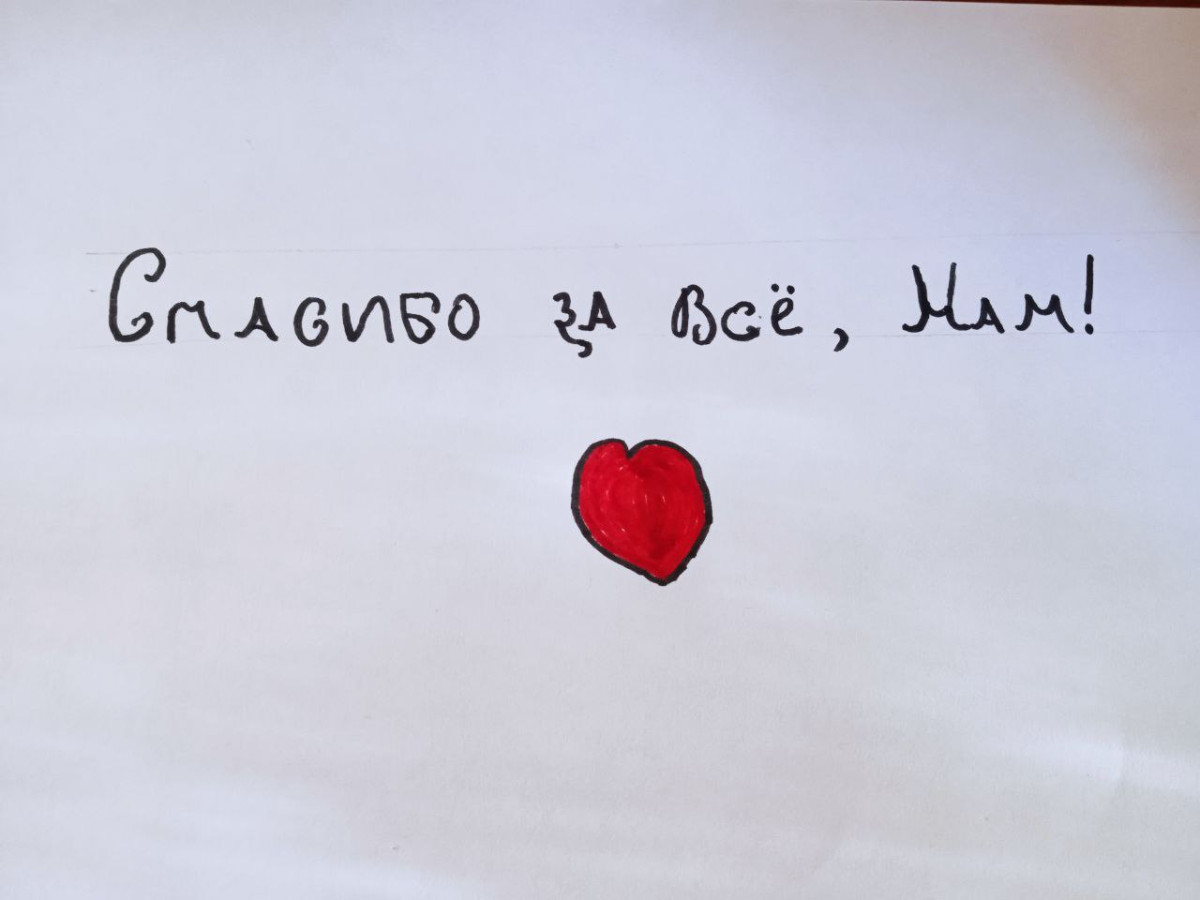 Спасибо за Всё, Мам!